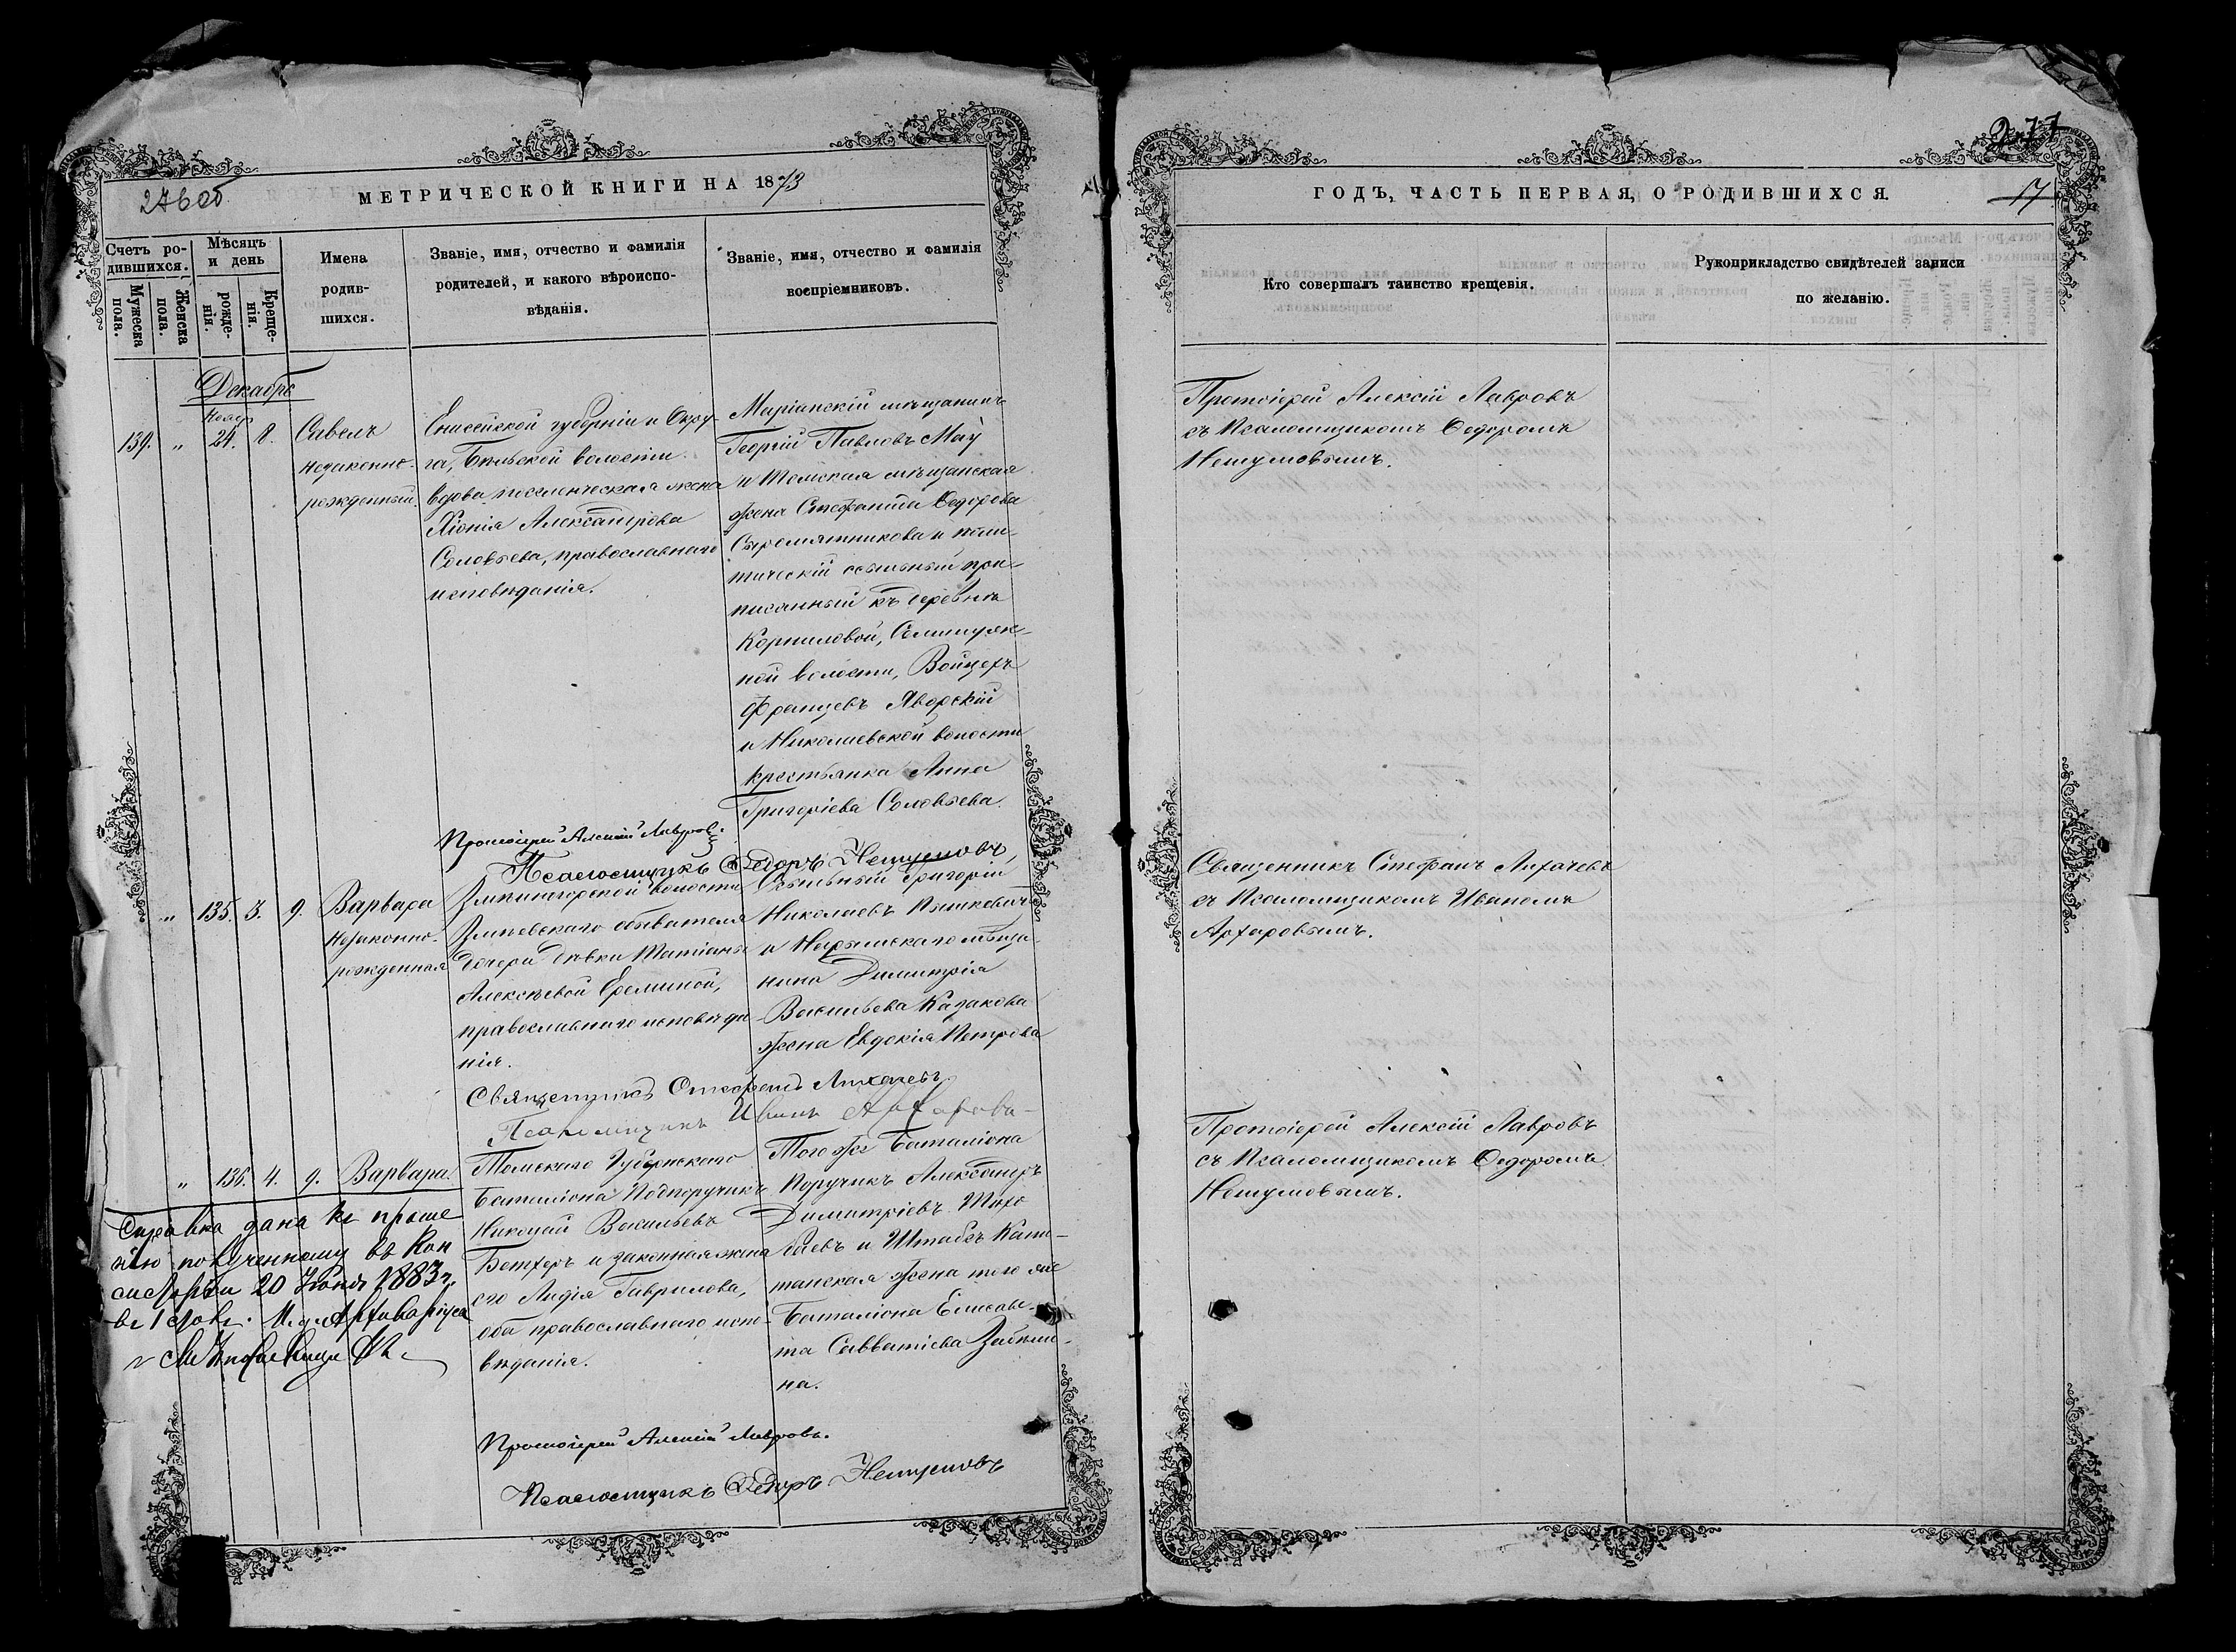 276 об
МЕТРИЧЕСКОЙ КНИГИ НА 1873
Счетъ ро-
дившихся.
Мужеска пола.
Женска пола.
Мѣсяцъ
и день
рожде-
нія.
Креще-
нія.
Имена
родив-
шихся.
Званіе, имя, отчество и фамилія
родителей, и какого вѣроиспо-
вѣданія.
Званіе, имя, отчество и фамилія
воспріемниковъ.
Декабрь
Нояб.
139. " 24. 8.
Савелъ
незаконно-
рожденный.
Енисейской губерніи и Окру-
га, Бѣльской волости
вдова поселенческая жена
Хіонія Александрова
Соловьева, православнаго
исповѣданія.
Маріинскій мѣщанинъ
Георгій Павловъ Май
и Томская мѣщанская
жена Стефанида Ѳедорова
Сыромятникова и поли-
тическій ссыльный при-
писанный къ деревнѣ
Корниловой, Семилуж-
ной волости, Войцехъ
Францевъ Яворскій
и Николаевской волости
крестьянка Анна
Григоріева Соловьева.
Протоіерей Алексій Лавровъ.
Псаломщикъ Ѳедоръ
" 135. 3. 9.
Варвара
незаконно-
рожденная
Змѣиногорской волости
обывателя
дочери дѣвки Татіаны
Алексѣевой Ереминой,
православнаго исповѣда-
нія.
Ссыльный Григорій
Николаевъ
и Нарымскаго мѣща-
нина Димитрія
Васильева Казакова
жена Евдокія Петрова
Священникъ Стефанъ Лихачевъ
Псаломщикъ Иванъ
" 136. 4. 9.
Варвара.
Томскаго Губернскаго
Баталіона Подпоручикъ
Николай Васильевъ
и законная жена
его Лидія Гаврилова,
оба православнаго испо-
вѣданія.
Того же Баталіона
Поручикъ Александръ
Димитріевъ
и Штабсъ Капи-
танская жена того же
Баталіона Елисаве-
та Савватіева
на.
Справка дана къ проше
нію полученному въ Кон
систоріи 20 Іюня 1883 г.
Протоіерей Алексій Лавровъ.
Псаломщикъ Ѳедоръ
ГОДЪ, ЧАСТЬ ПЕРВАЯ, О РОДИВШИХСЯ.
277
17
Кто совершалъ таинство крещенія.
Рукоприкладство свидѣтелей записи
по желанію.
Протоіерей Алексій Лавровъ
съ Псаломщикомъ Ѳедоромъ
Священникъ Стефанъ Лихачевъ
съ Псаломщикомъ Иваномъ
Протоіерей Алексій Лавровъ
съ Псаломщикомъ Ѳедоромъ